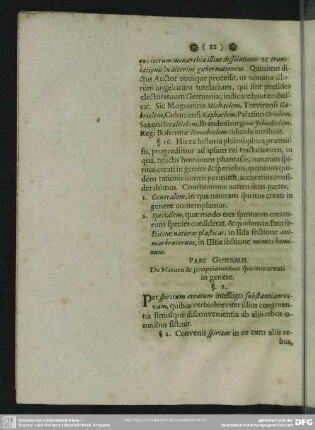 (22)
que iterum monarchiæ istius dissolutionem ac trans-
lationis in alterius gubernationem. Quinimo di-
ctus Auctor eousque procedit, ut nomina illo-
rum angelorum tutelarium, qui sint præsides
electoratuum Germaniæ, indicare haut erubes-
cat. Sic Moguntino Michaelem, Trevirensi Ga-
brielem, Coloniensi Raphaelem, Palatino Urielem,
Saxoni Israëlielem, Brandenburgico
Regi Bohemiæ ridicule attribuit.
§. 16. His ex historia philosophica præmis-
sis, progredimur ad ipsam rei tractationem, in
qua, relictis hominum phantasiis, naturam spi-
ritus creati in genere & speciebus, quantum qui-
dem rationis lumen permittit, accuratius consi-
derabimus. Constituimus autem duas partes,
1. Generalem, in qua naturam spiritus creati in
genere contemplamur.
2. Specialem, quæ modo tres spirituum creato-
rum species considerat, & quidem in Ima se-
ctione naturas plasticas, in IIda sectione ani-
mas brutorum, in IIItia sectione mentes homi-
num.
PARS GENERALIS
De Natura & proprietatibus spiritus creati
in genere.
§. 1.
Per spiritum creatum intelligo substantiam vi-
vam, quibus verbis breviter illius congruen-
tia simulque disconvenientia ab aliis rebus o-
mnibus sistitur.
§ 2. Convenit spiritus in eo cum aliis re-
bus,